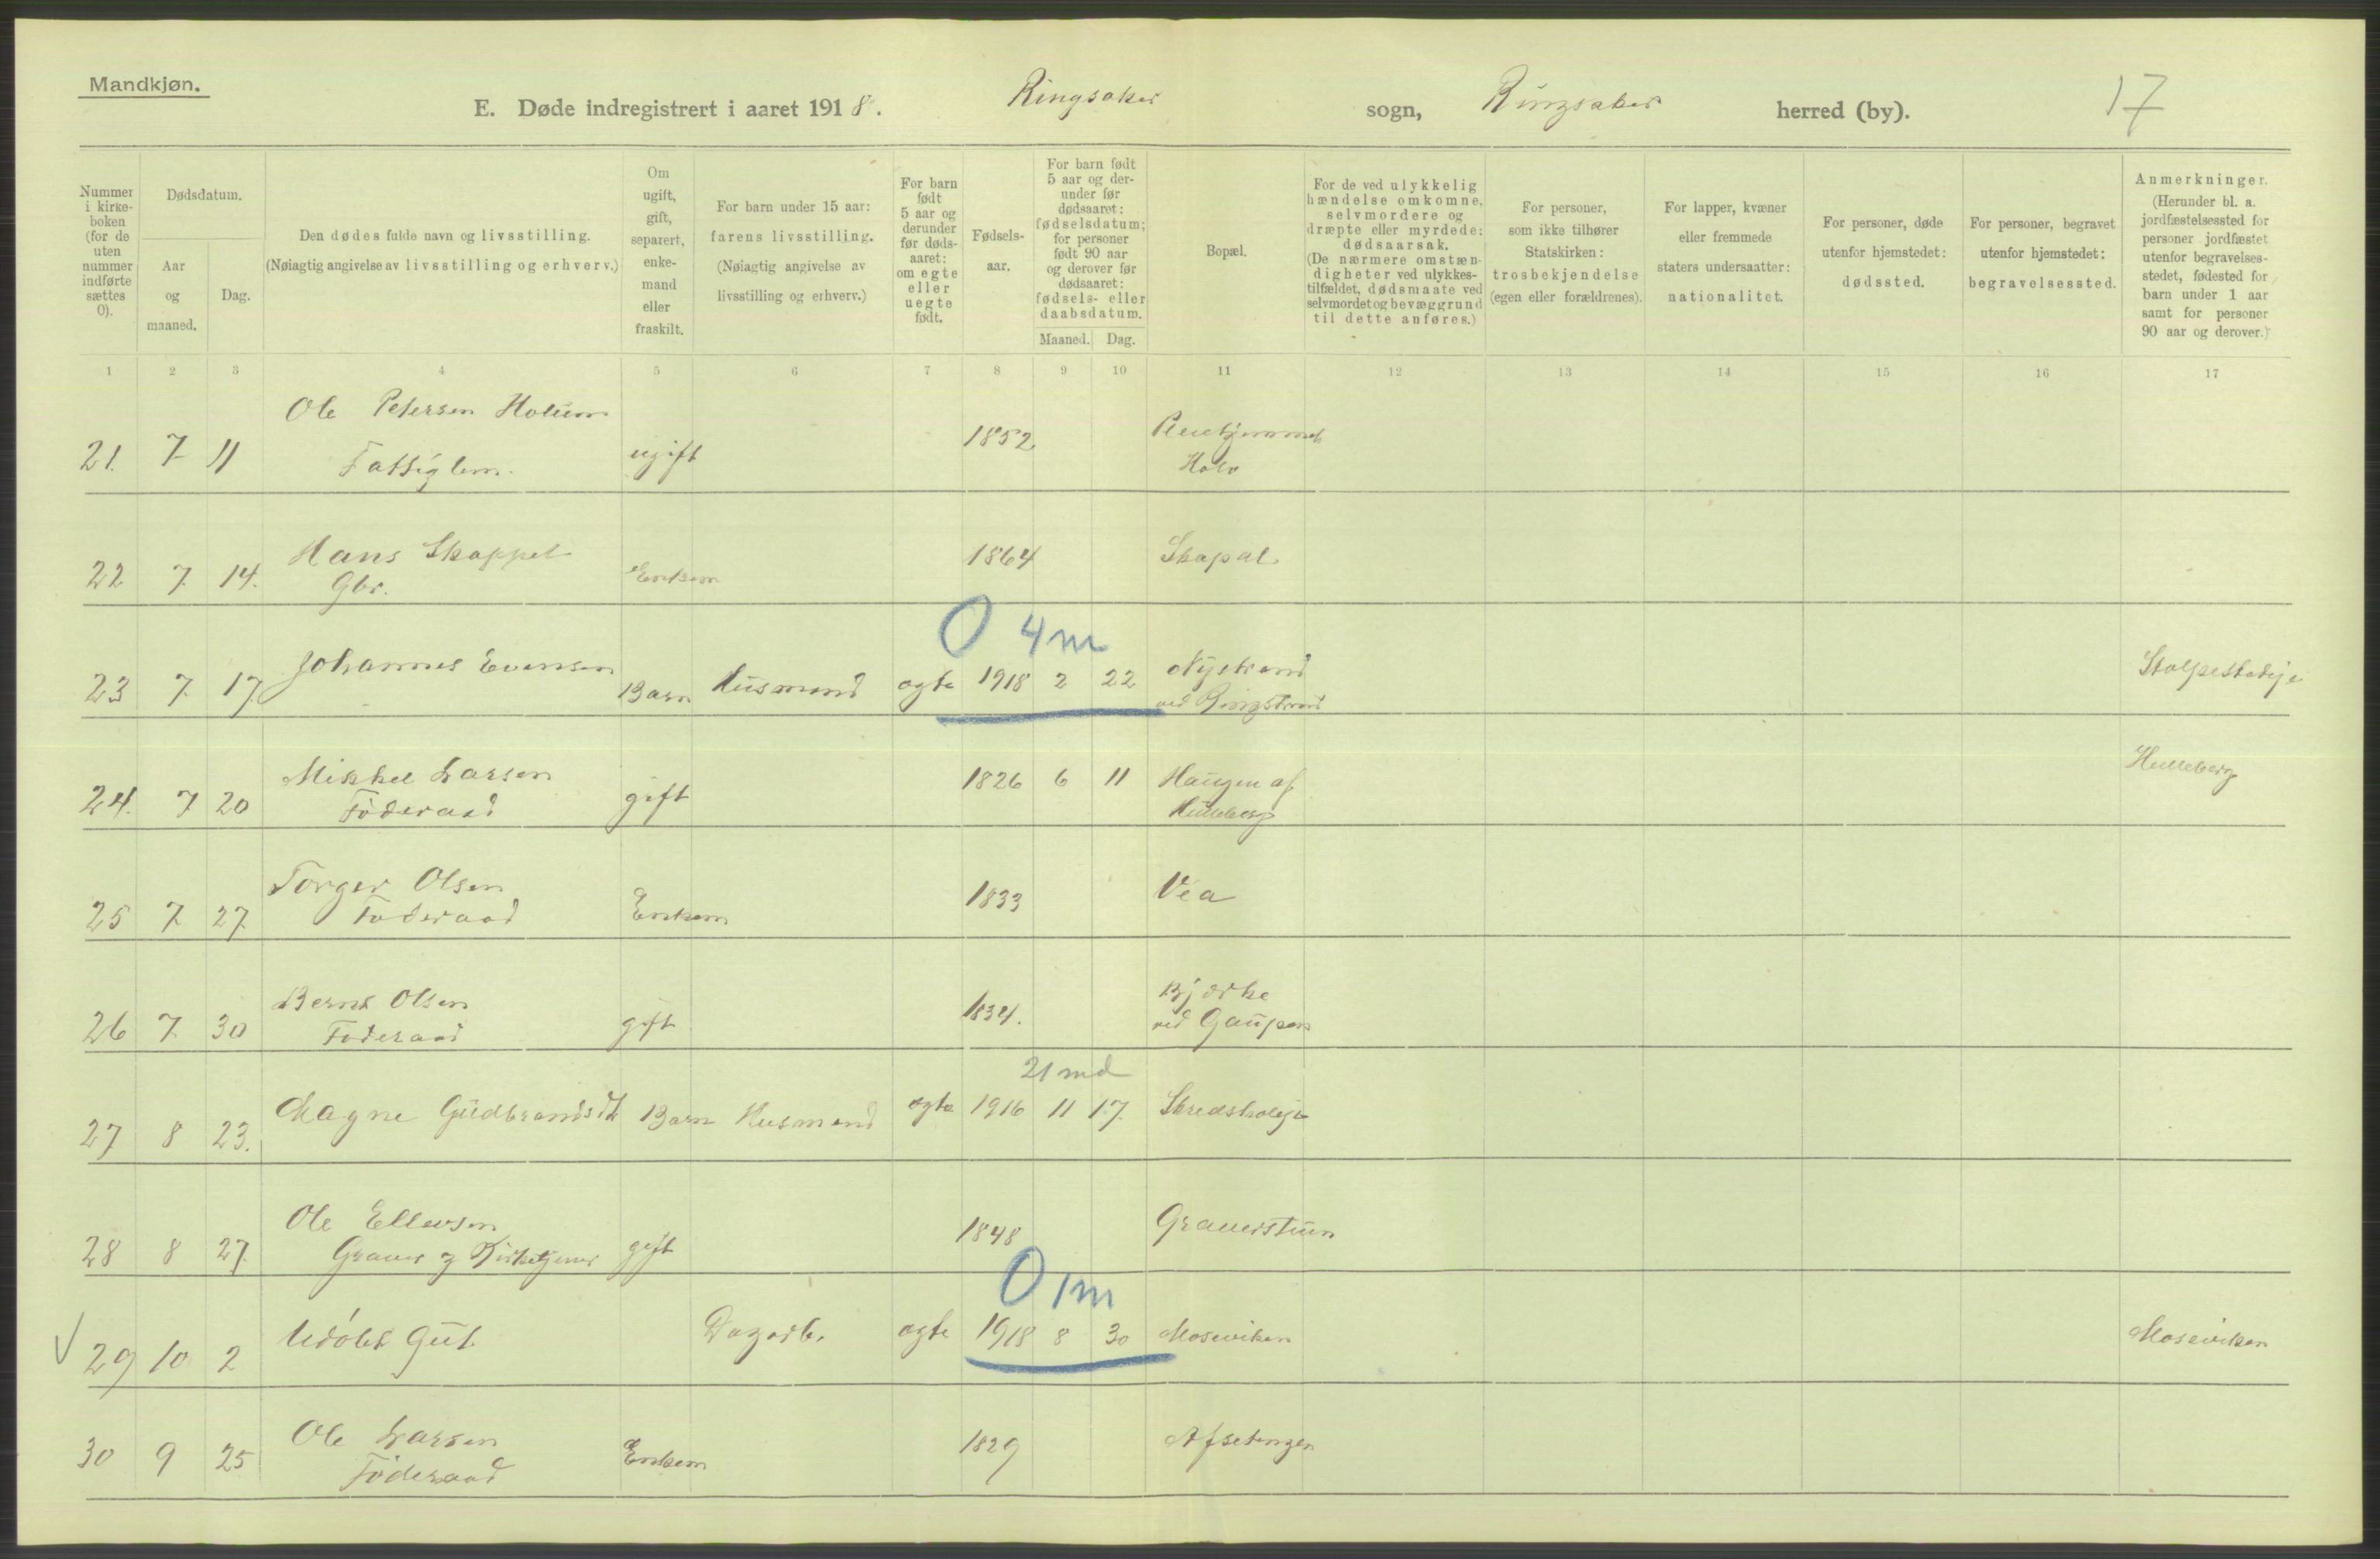 Mandkjøn.
E. Døde indregistrert i aaret 1918. Ringsaker sogn, Ringsaker herred (by). 17
Nummer i kirke-boken (for de uten nummer indførte sættes 0).
Dødsdatum.
Aar og maaned.
Dag.
Den dødes fulde navn og livsstilling.
(Nøiagtig angivelse av livsstilling og erhverv.)
Om ugift, gift, separert, enke-mand eller fraskilt.
For barn under 15 aar: farens livsstilling.
(Nøiagtig angivelse av livsstilling og erhverv.)
For barn født 5 aar og derunder før døds-aaret: om egte eller uegte født.
Fødsels-aar.
For barn født 5 aar og der-under før dødsaaret: fødselsdatum; for personer født 90 aar og derover før dødsaaret: fødsels- eller daabsdatum.
Maaned. Dag.
Bopæl.
For de ved ulykkelig hændelse omkomne, selvmordere og dræpte eller myrdede: dødsaarsak.
(De nærmere omstæn-digheter ved ulykkes-tilfældet, dødsmaate ved selvmordet og bevæggrund til dette anføres.)
For personer, som ikke tilhører Statskirken: trosbekjendelse (egen eller forældrenes).
For lapper, kvæner eller fremmede staters undersaatter: nationalitet.
For personer, døde utenfor hjemstedet: dødssted.
For personer, begravet utenfor hjemstedet: begravelsessted.
Anmerkninger.
(Herunder bl. a. jordfæstelsessted for personer jordfæstet utenfor begravelses-stedet, fødested for barn under 1 aar samt for personer 90 aar og derover.)
1 2 3 4 5 6 7 8 9 10 11 12 13 14 15 16 17
Ole Petersen Holum
21. 7 11 Fattiglem. ugift 1852 Pleiehjemmet
Holo
22 7 14. Hans Skappel Enkem 1864 Skapal
Gbr.
0 4m
23 7 17 Johannes Evensen Barn Husmand ægte 1918 2 22 Nystrand Stolpestadeje
ved Ringstrand
24. 7 20 Mikkel Larsen gift 1826 6 11 Haugen af Hulleberg
Föderaad Hulleberg
25 7 27 Torger Olsen Enkem 1833 Vea
Föderaad
26 7 30 Bernt Olsen gift 1834. Bjørke
Föderaad ved Gaupen
21 md
27 8 23. Magne Gudbrands Barn Husmand ægte 1916 11 17. Skredshøleje
28 8 27 Ole Ellevsen gift 1848 Graverstuen
Graver og Kirketjener
0 1m
29 10 2 Udöbt Gut Dagarb. ægte 1918 8 30 Moseviken Moseviken
30 9 25 Ole Larsen Enkem 1829 Afsetengen
Föderaad